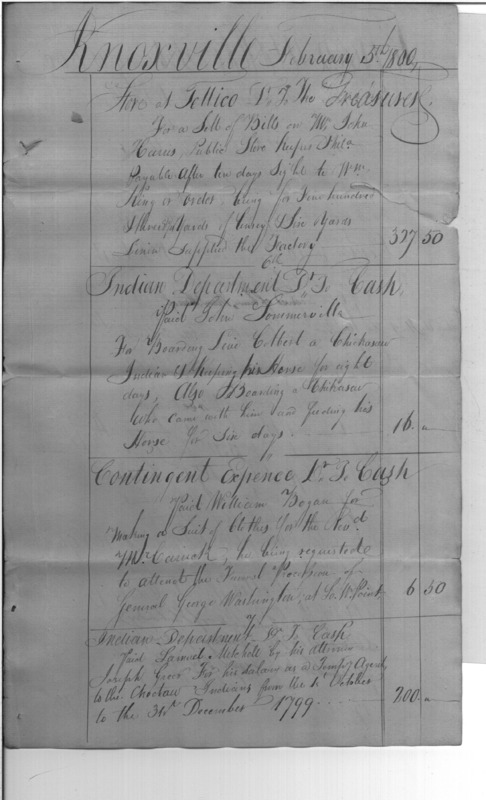 Knoxville February 5th 1800,
Store at Tellico Dr. To The Treasurer
For a Sett of Bills on Mr. John
Harris, Public Store Keeper Phila.
Payable after ten days Sight to Wm.
King or Order being for Four hundred
Yards of & Six Yards
Linen Supplied the Factory
327 50
6th
Indian Department Dr. To Cash,
Paid John Sommerville
For Boarding Colbert a Chickasaw
Indian & keeping his Horse for eight
days, Also Boarding a Chikasaw
who came with him and feeding his
Horse for Six days.
16. "
Contingent Expence Dr. To Cash
Paid William Bogan for
Making a Suit of Clothes for the Revd.
Mr. Carrick, he being requisted
to attend the Funeral Procession of
General George Washington, at So. W. Point
6 50
Indian Department Dr. To Cash
Paid Samuel Mitchell by his attorney
Joseph Greer For his salary as a Tempy Agent
to the Choctaw Indians from the 1st October
to the 31st December 1799
200. "